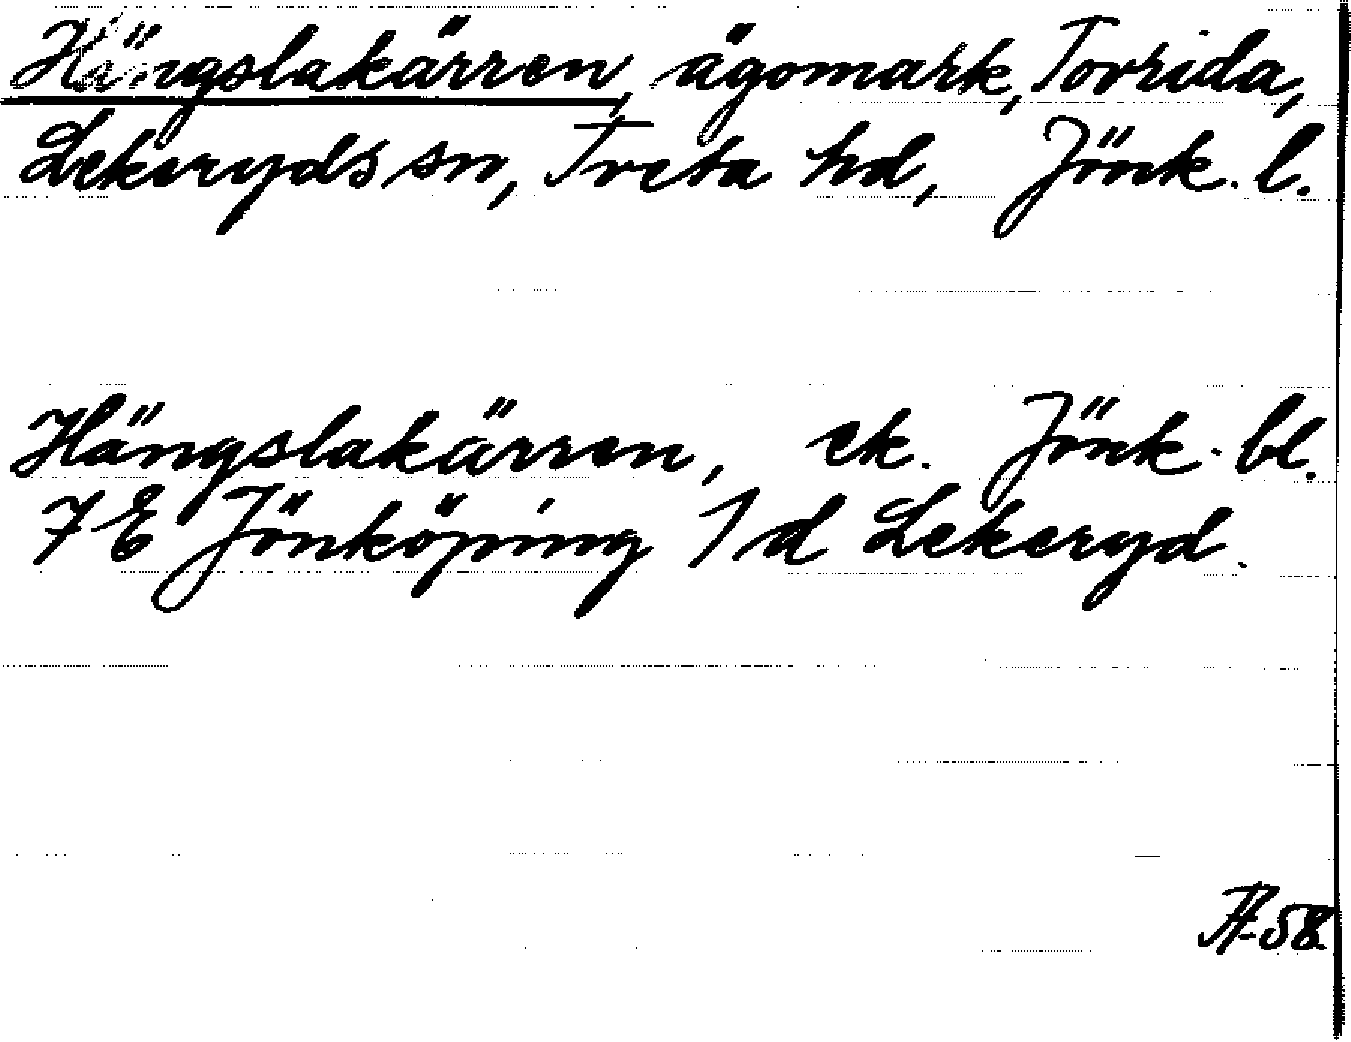 Hängslakärren, ägomark, Torrida,
Lekeryds sn, Tveta hd, Jönk. l.
Hängslakärren, ek. Jönk. bl.
7E Jönköping 1d Lekeryd.